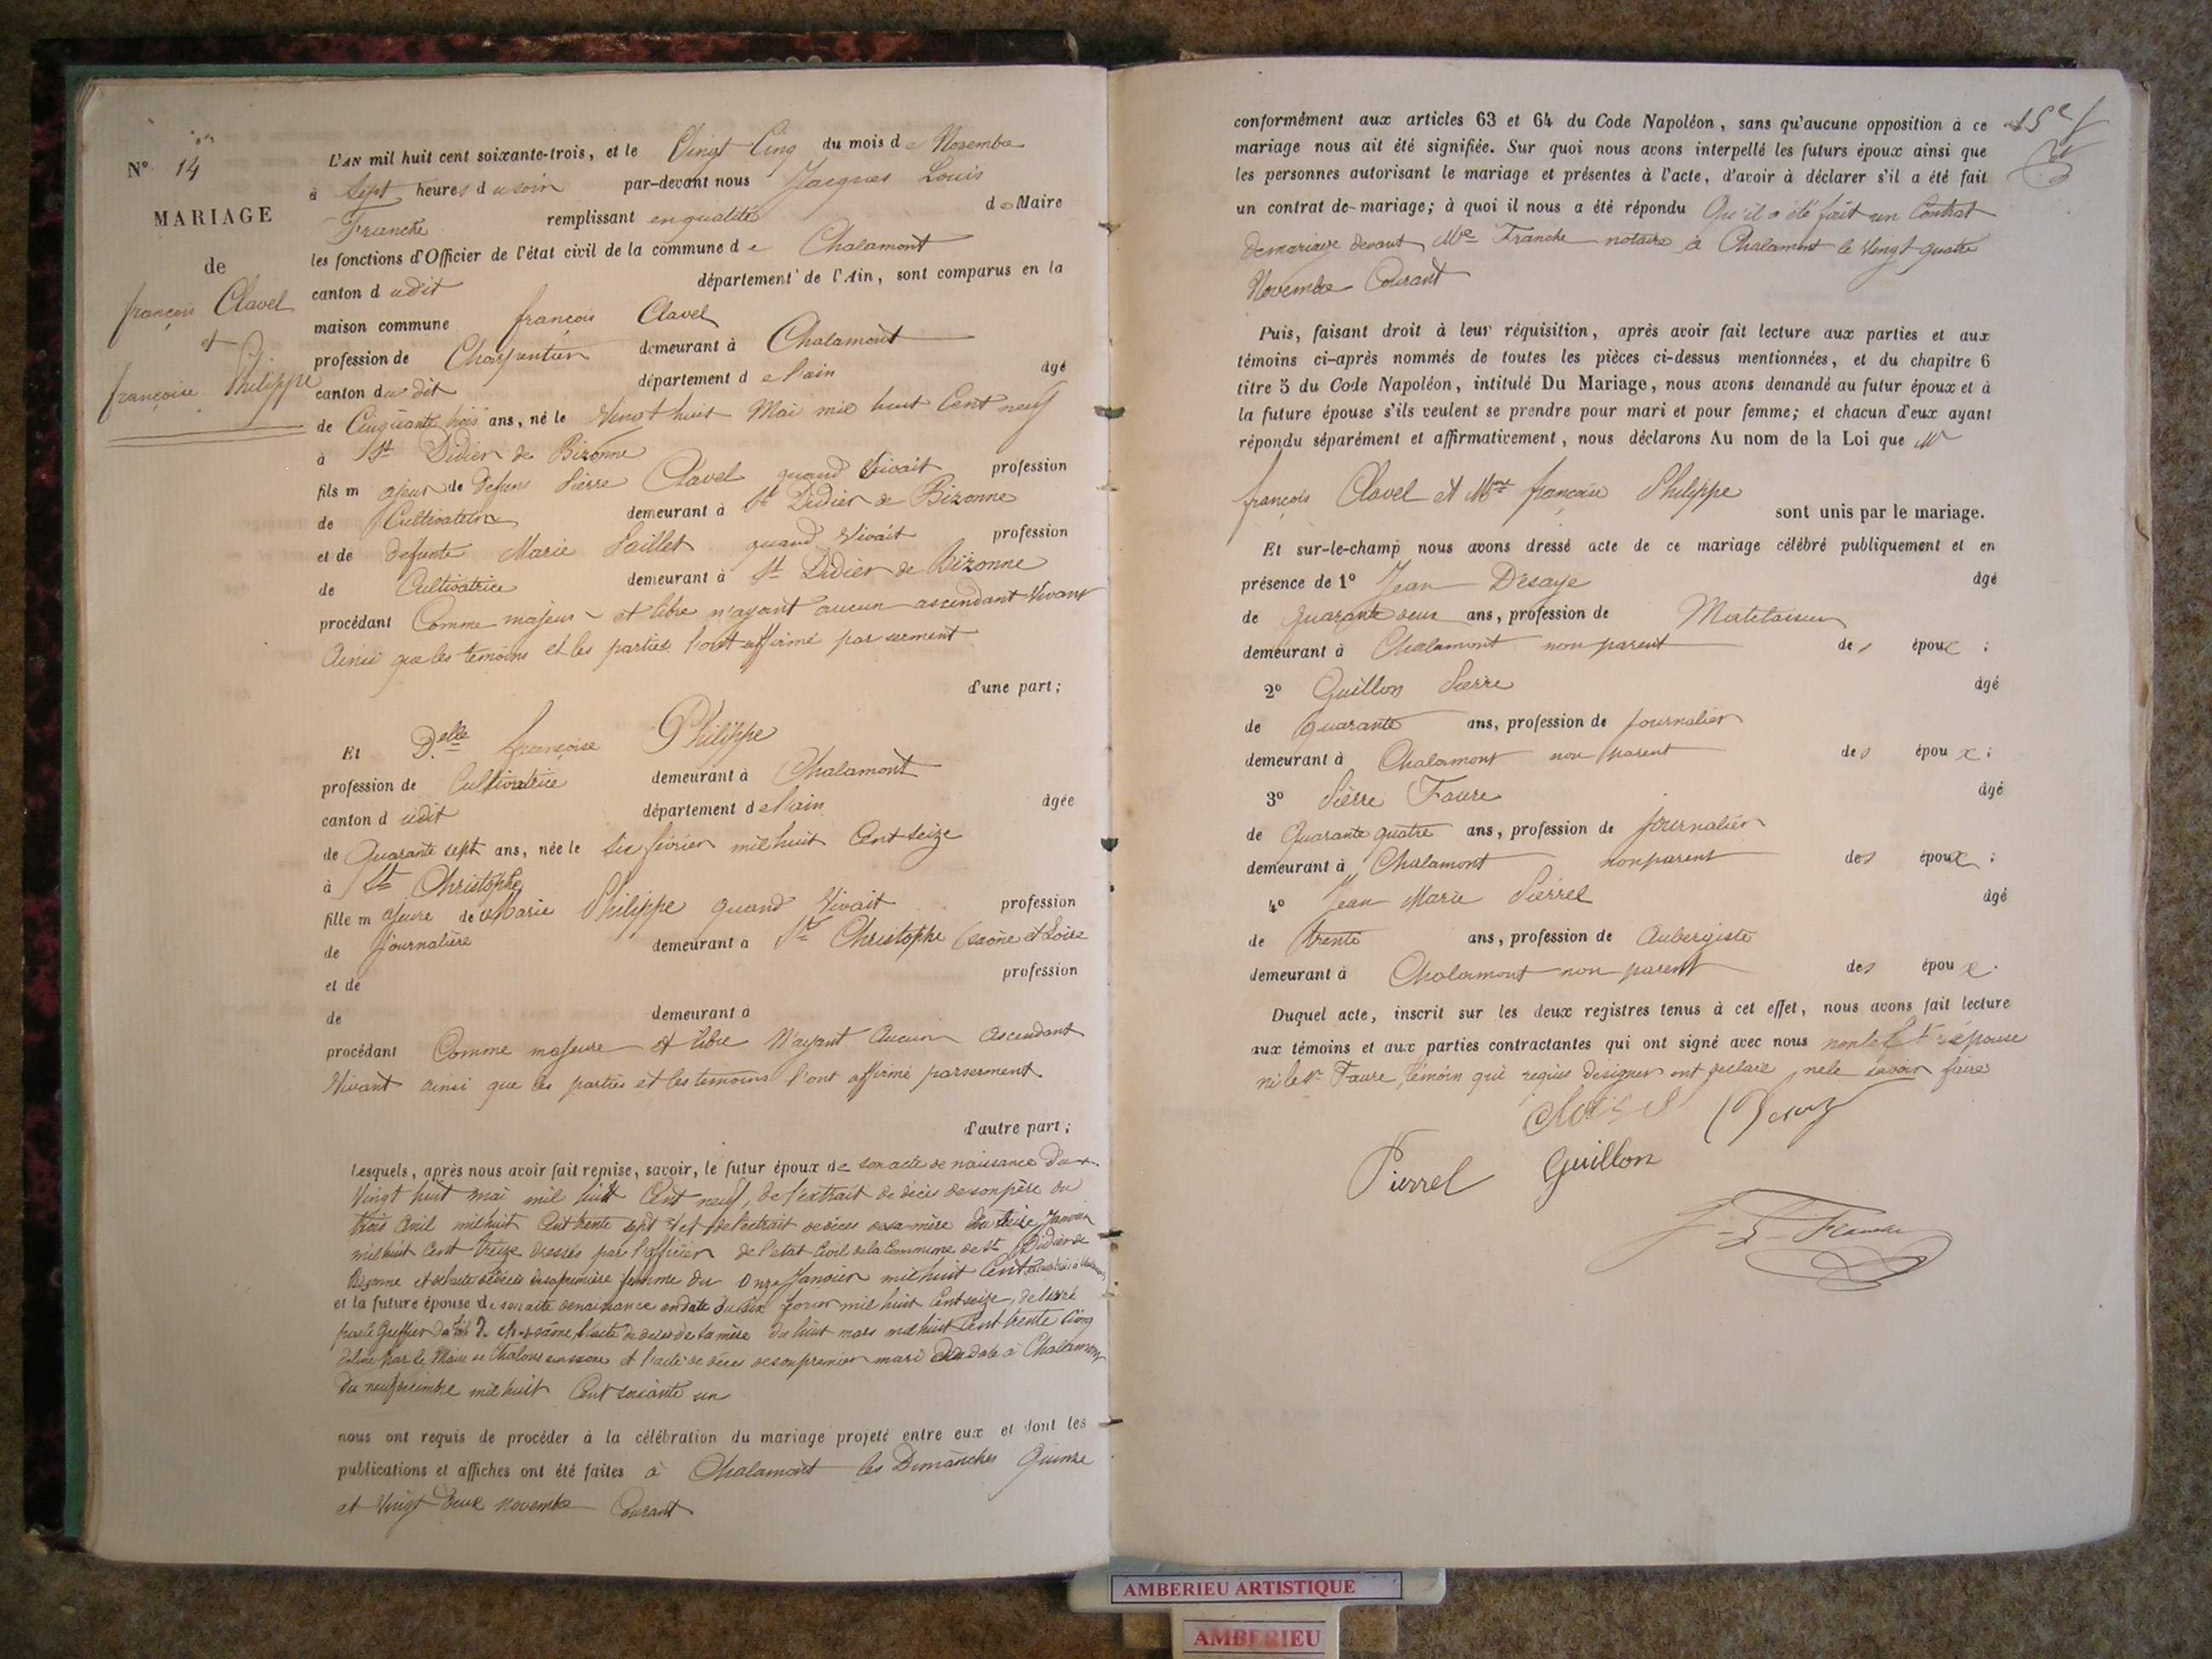 N° 14
MARIAGE
de
françois Clavel
et
françoise Philippe
L'AN mil huit cent soixante-trois, et le Vingt Cinq du mois de Novembre
à Sept heures du soir par-devant nous Jacques Louis
Franche remplissant en qualité de Maire
les fonctions d'Officier de l'état civil de la commune de Chalamont
canton dudit département de l'Ain, sont comparus en la
maison commune françois Clavel
profession de Charpentier demeurant à Chalamont
canton du dit département de l'ain âgé
de Cinquante trois ans, né le Vingt huit Mai mil huit Cent neuf
à St Didier de Bizonne
fils majeur de defunt Pierre Clavel quand Vivait profession
de Cultivateur demeurant à St Didier de Bizonne
et de defunte Marie Paillet quand Vivait profession
de Cultivatrice demeurant à St Didier de Bizonne
procédant Comme majeur et libre n'ayant aucun ascendant Vivant
Ainsi que les temoins et les parties l'ont affirmé par serment
d'une part;
Et Delle françoise Philippe
profession de Cultivatrice demeurant à Chalamont
canton dudit département de l'ain âgée
de Quarante sept ans, née le six février mil huit Cent seize
à St Christophe
fille majeure de Marie Philippe quand Vivait profession
de Journalière demeurant à St Christophe (Saône et Loire
et de profession
de demeurant à
procédant Comme majeure et libre N'ayant Aucun Ascendant
Vivant ainsi que les parties et les temoins l'ont affirmé par serment
d'autre part;
Lesquels, après nous avoir fait remise, savoir, le futur époux de son acte de naissance du
Vingt huit mai mil huit Cent neuf, de l'extrait de décès de son père du
trois avril mil huit Cent trente sept et de l'extrait de décès de sa mère du Janvier
mil huit Cent treize dressés par l'officier de l'etat Civil de la Commune de St Didier de
Bizonne et de l'acte de décès de sa première femme du Onze Janvier mil huit Cent
et la future épouse de son acte de naissance en date du six février mil huit Cent seize, delivré
par le Greffier du saône, l'acte de deces de sa mère du huit mars mil huit Cent trente Cinq
délivré par le Maire de Chalons sur saone et l'acte de décès de son premier mari à Chalamont
du neuf décembre mil huit Cent soixante un
nous ont requis de procéder à la célébration du mariage projeté entre eux et dont les
publications et affiches ont été faites à Chalamont les Dimanches Quinze
et Vingt Deux novembre Courant
conformément aux articles 63 et 64 du Code Napoléon, sans qu'aucune opposition à ce
mariage nous ait été signifiée. Sur quoi nous avons interpellé les futurs époux ainsi que
les personnes autorisant le mariage et présentes à l'acte, d'avoir à déclarer s'il a été fait
un contrat de mariage; à quoi il nous a été répondu Qu'il a été fait un Contrat
de mariage devant Me Franche notaire à Chalamont le Vingt quatre
Novembre Courant
Puis, faisant droit à leur réquisition, après avoir fait lecture aux parties et aux
témoins ci-après nommés de toutes les pièces ci-dessus mentionnées, et du chapitre 6
titre 5 du Code Napoléon, intitulé Du Mariage, nous avons demandé au futur époux et à
la future épouse s'ils veulent se prendre pour mari et pour femme; et chacun d'eux ayant
répondu séparément et affirmativement, nous déclarons Au nom de la Loi que Mr
françois Clavel et Mme françoise Philippe
sont unis par le mariage.
Et sur-le-champ nous avons dressé acte de ce mariage célébré publiquement et en
présence de 1° Jean Desaye âgé
de quarante deux ans, profession de Matelassier
demeurant à Chalamont non parent des époux ;
2° Guillon Pierre âgé
de quarante ans, profession de Journalier
demeurant à Chalamont non parent des époux ;
3° Pierre Faure âgé
de Quarante quatre ans, profession de Journalier
demeurant à Chalamont non parent des époux ;
4° Jean Marie Pierrel âgé
de trente ans, profession de Aubergiste
demeurant à Chalamont non parent des époux.
Duquel acte, inscrit sur les deux registres tenus à cet effet, nous avons fait lecture
aux témoins et aux parties contractantes qui ont signé avec nous non l'épouse
ni le sr Faure, témoin qui requis de signer ont declaré ne le savoir faire
Pierrel Guillon
AMBERIEU ARTISTIQUE
AMBERIEU